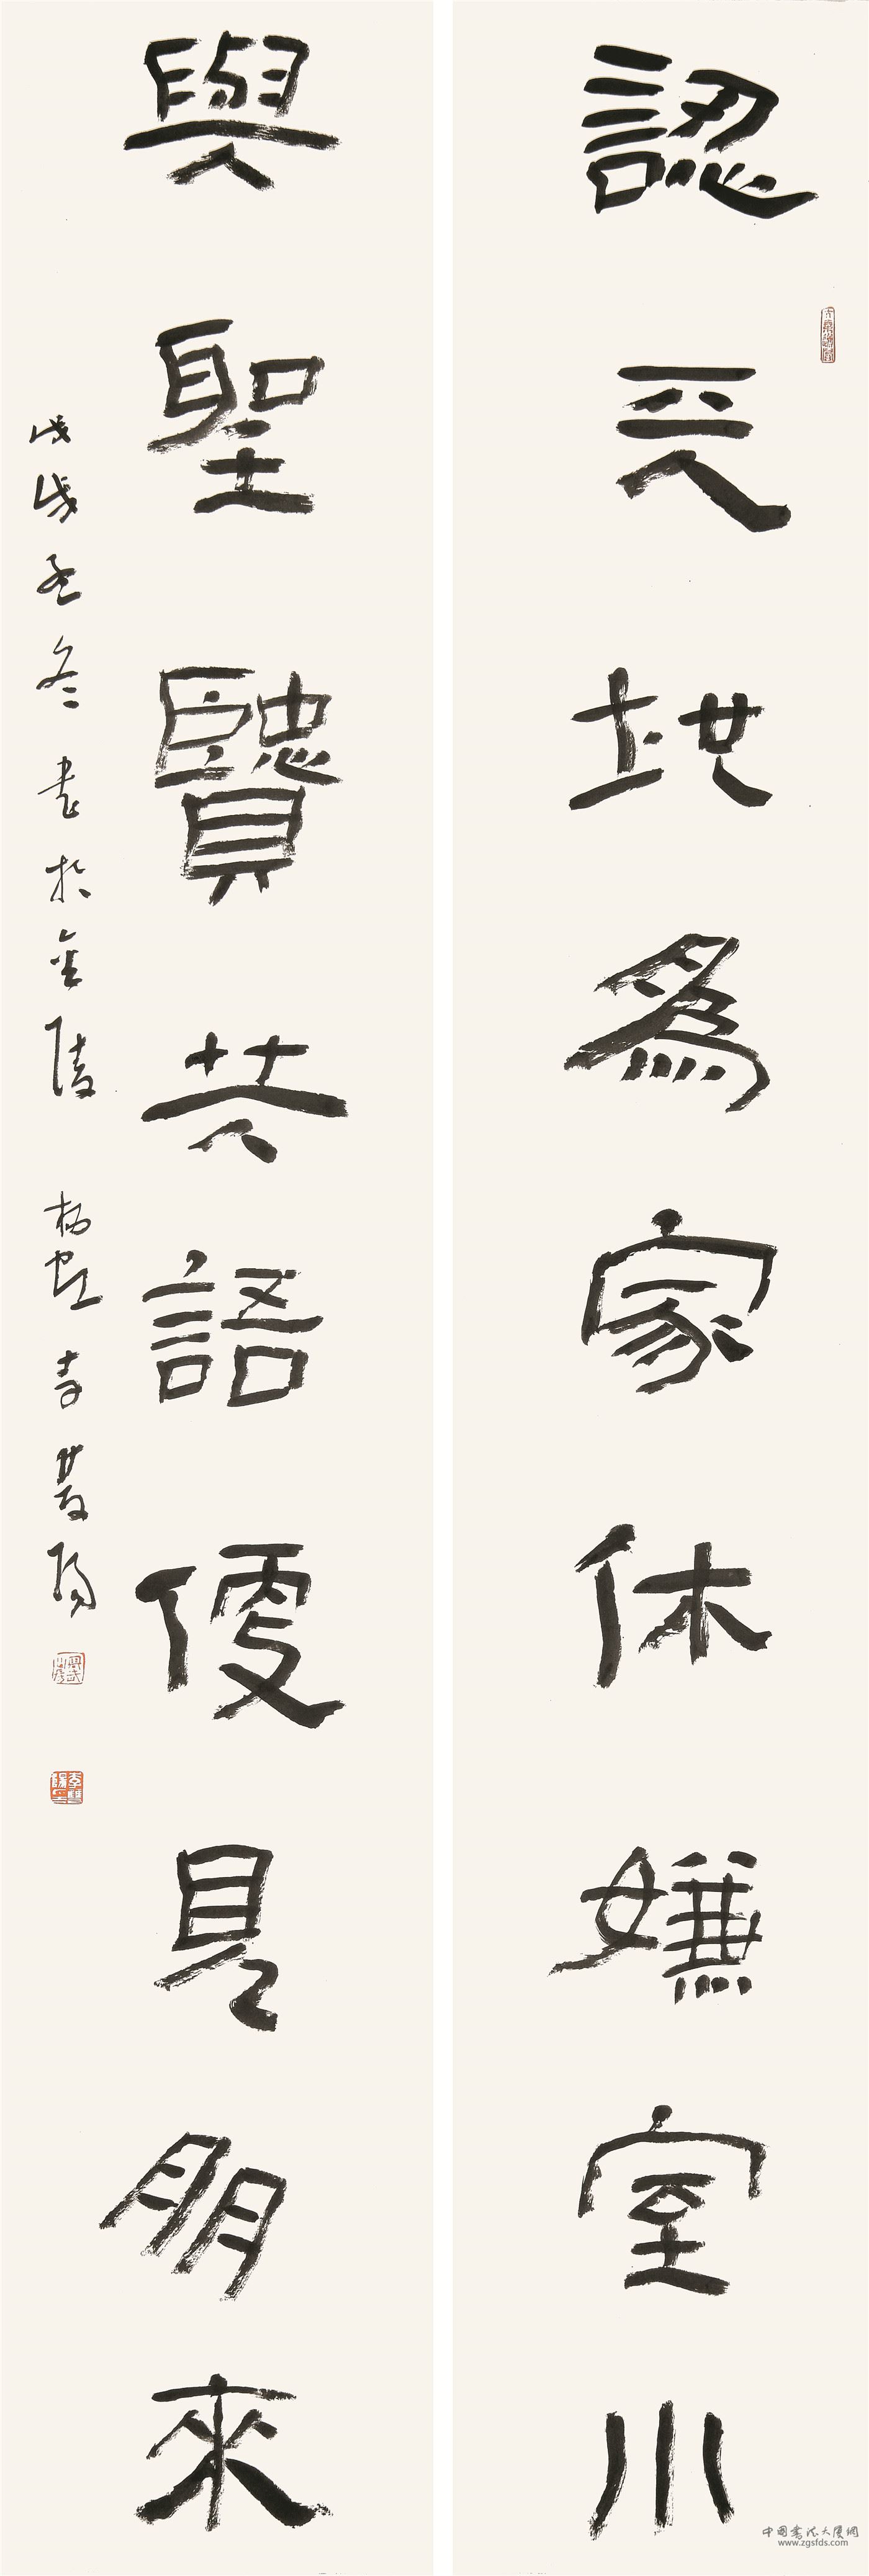 認天地為家休嫌室小
與聖賢共語便見朋來
戊戌孟冬書於金陵 栖霞 李雙陽
中国书法大厦网
www.zgsfds.com